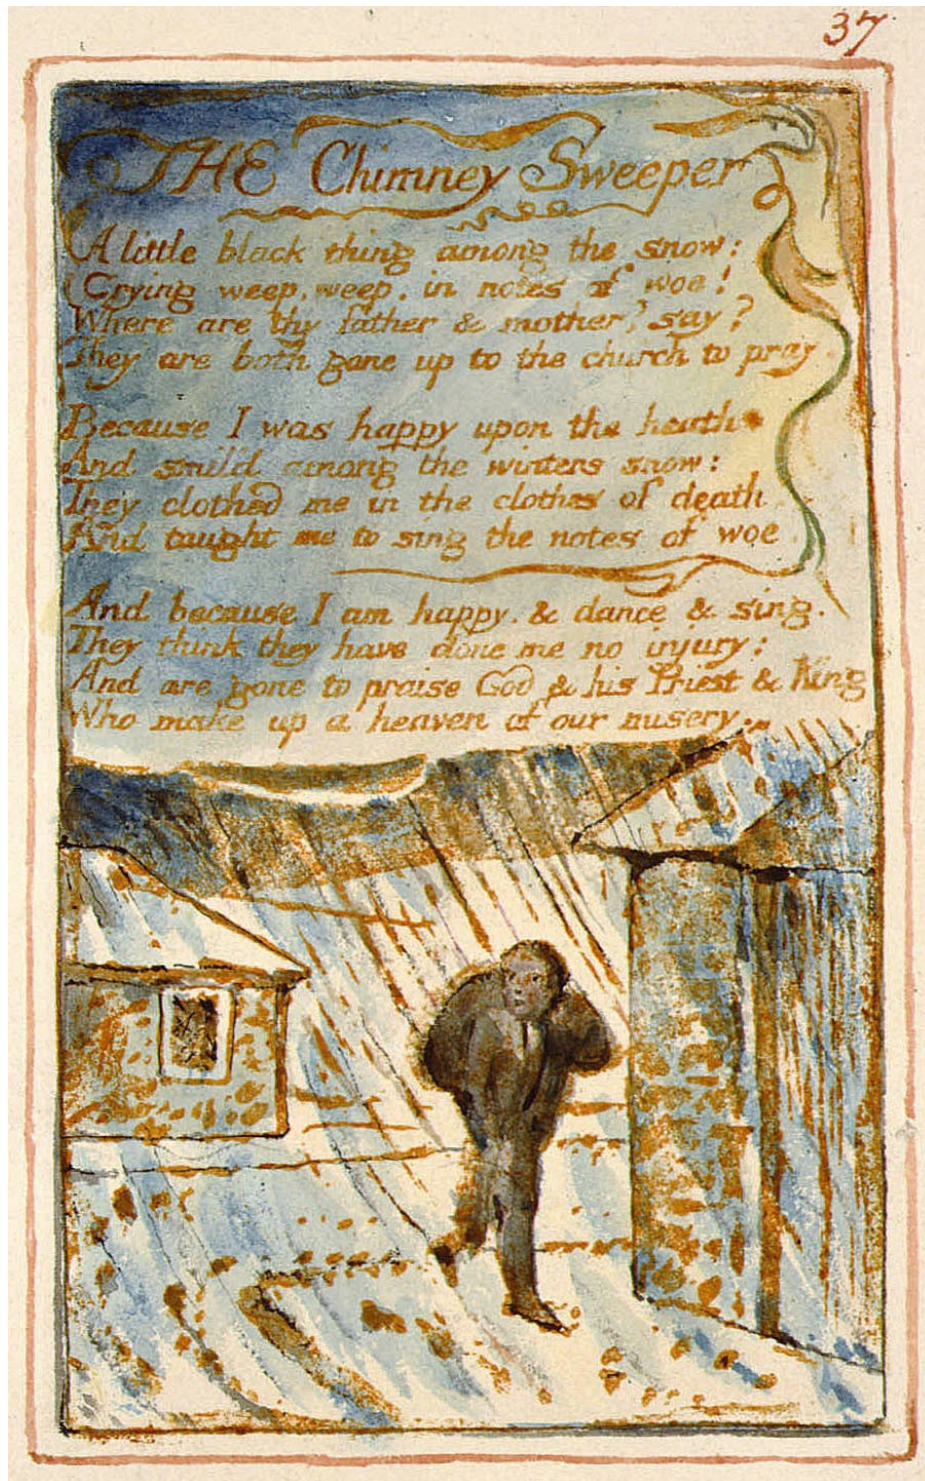 37
THE Chimney Sweeper
A little black thing among the snow:
Crying weep, weep, in notes of woe!
Where are thy father & mother? say?
They are both gone up to the church to pray.
Because I was happy upon the heath.
And smil'd among the winters snow:
They clothed me in the clothes of death
And taught me to sing the notes of woe
And because I am happy. & dance & sing.
They think they have done me no injury:
And are gone to praise God & his Priest & King
Who make up a heaven of our misery.